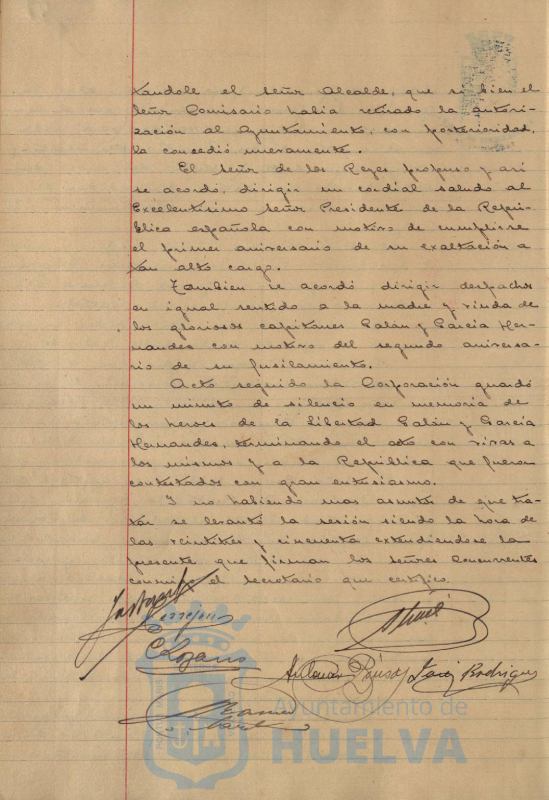 tandole el señor Alcalde, que si bien el
señor Comisario habia retirado la autori-
zación al Ayuntamiento, con posterioridad,
la concedió nuevamente.
El señor de los Reyes propuso y asi
se acordó, dirigir un cordial saludo al
Excelentisimo señor Presidente de la Repú-
blica española con motivo de cumplirse
el primer aniversario de su exaltación a
tan alto cargo.
Tambien se acordó dirigir despachos
en igual sentido a la madre y viuda de
los gloriosos capitanes Galán y Garcia Her-
nandes con motivo del segundo aniversa-
rio de su fusilamiento.
Acto seguido la Corporación guardó
un minuto de silencio en memoria de
los heroes de la Libertad Galán y Garcia
Hernandes, terminando el acto con vivas a
los mismos y a la República que fueron
contestados con gran entusiasmo.
Y no habiendo mas asuntos de que tra-
tar se levantó la sesión siendo la hora de
las veintitres y cincuenta extendiendose la
presente que firman los señores concurrentes
conmigo el secretario que certifico.
C Lozano
Rodriguez
Ayuntamiento de
HUELVA